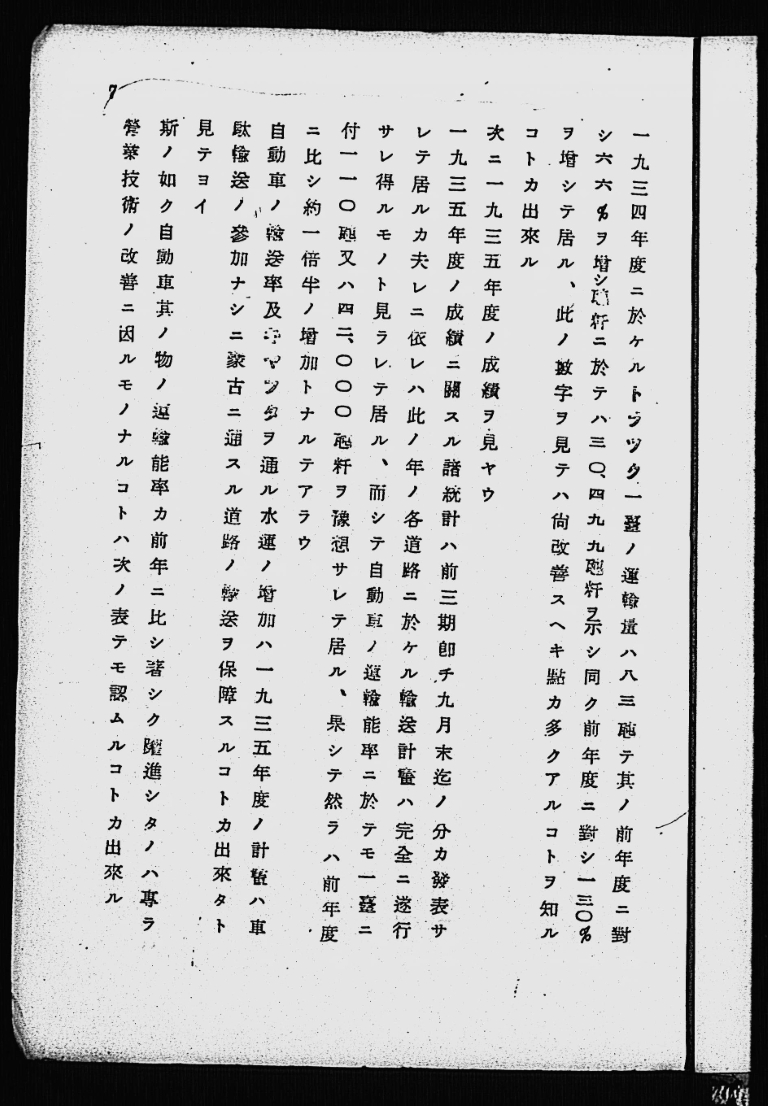 7
一九三四年度ニ於ケルトラツク一臺ノ運輸量ハ八三瓲テ其ノ前年度ニ對
シ六六%ヲ增シ瓲粁ニ於テハ三〇、四九九瓲粁ヲ示シ同ク前年度ニ對シ一三〇%
ヲ增シテ居ル、此ノ數字ヲ見テハ尙改善スヘキ點カ多クアルコトヲ知ル
コトカ出來ル
次ニ一九三五年度ノ成績ヲ見ヤウ
一九三五年度ノ成績ニ關スル諸統計ハ前三期卽チ九月末迄ノ分カ發表サ
レテ居ルカ夫レニ依レハ此ノ年ノ各道路ニ於ケル輸送計畫ハ完全ニ遂行
サレ得ルモノト見ラレテ居ル、而シテ自動車ノ運輸能率ニ於テモ一臺ニ
付一一〇瓲又ハ四二、〇〇〇瓲粁ヲ豫想サレテ居ル、果シテ然ラハ前年度
ニ比シ約一倍半ノ增加トナルテアラウ
自動車ノ輸送率及チヤツタヲ通ル水運ノ增加ハ一九三五年度ノ計畫ハ車
駄輸送ノ參加ナシニ蒙古ニ通スル道路ノ輸送ヲ保障スルコトカ出來タト
見テヨイ
斯ノ如ク自動車其ノ物ノ運輸能率カ前年ニ比シ著シク躍進シタノハ專ラ
營業技術ノ改善ニ因ルモノナルコトハ次ノ表テモ認ムルコトカ出來ル